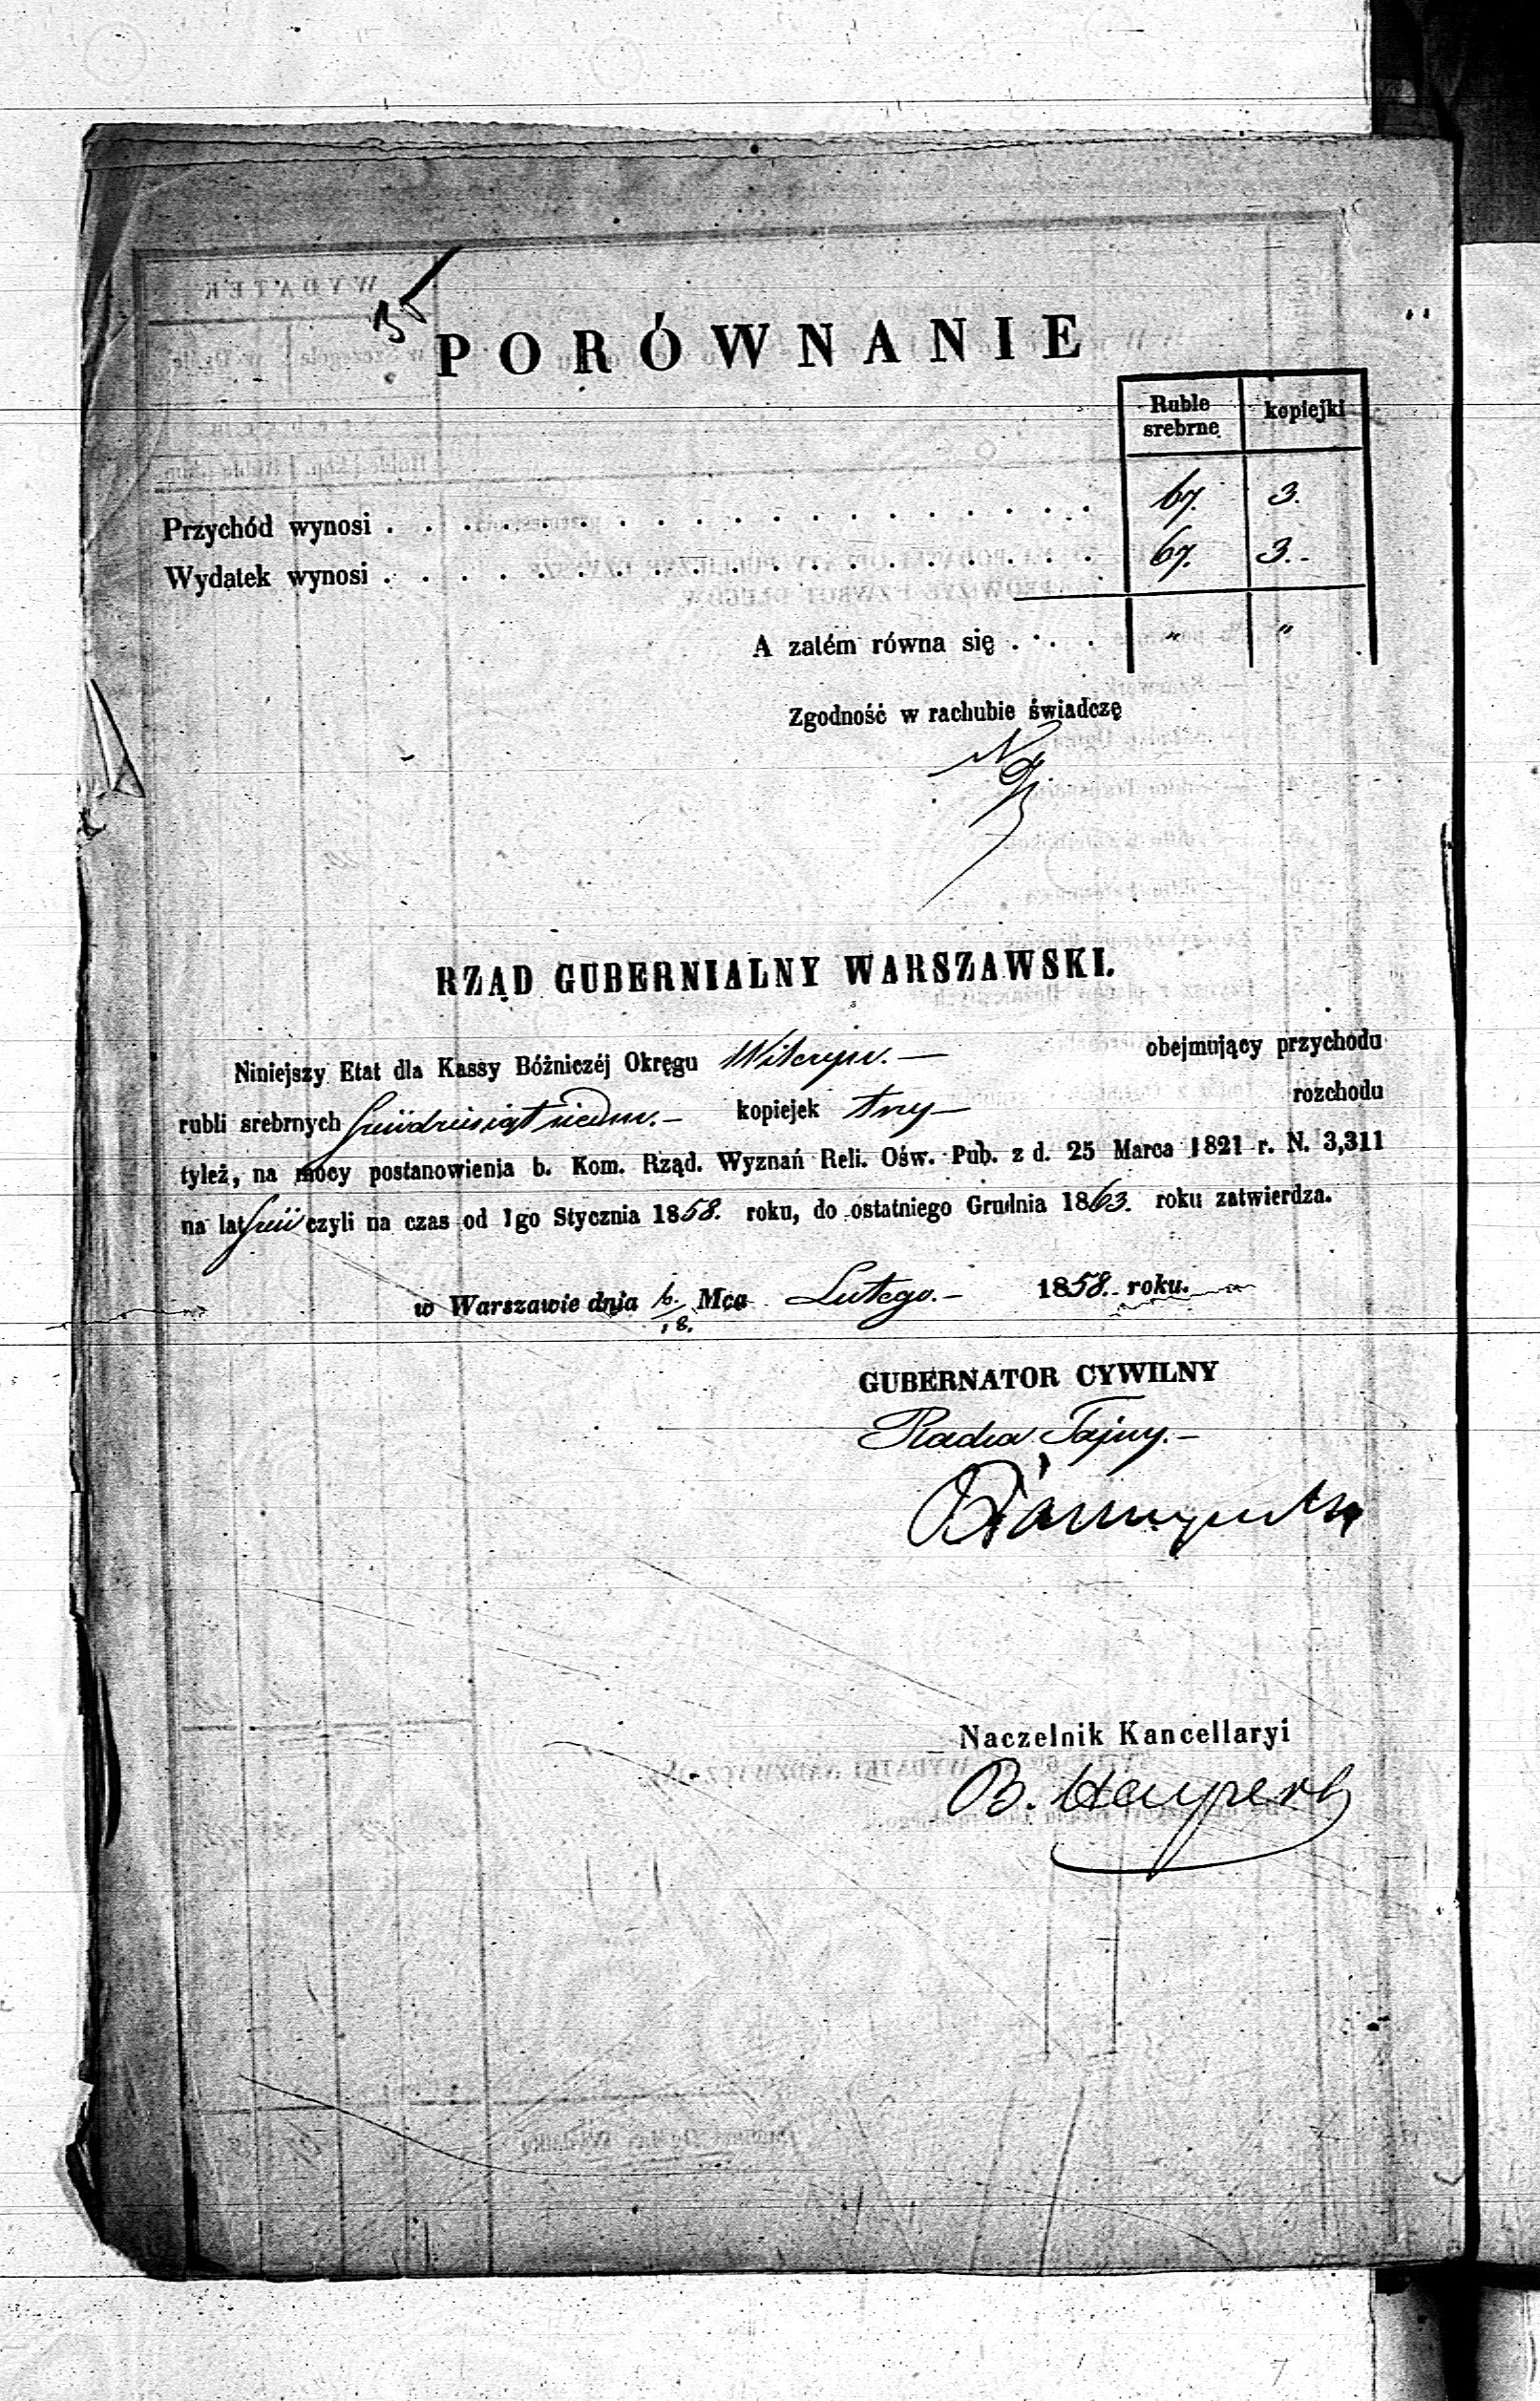 PORÓWNANIE
Ruble srebrne kopiejki
Przychód wynosi . . . . . . . . . . . . . . . . . . . 67. 3.
Wydatek wynosi . . . . . . . . . . . . . . . . . . . 67. 3.-
A zatém równa się . . . . " "
Zgodność w rachubie świadczę
RZĄD GUBERNIALNY WARSZAWSKI.
Niniejszy Etat dla Kassy Bóżniczéj Okręgu obejmujący przychodu
rubli srebrnych sześćdziesiąt siedm.- kopiejek trzy- rozchodu
tyleż, na mocy postanowienia b. Kom. Rząd. Wyznań Reli. Ośw. Pub. z d. 25 Marca 1821 r. N. 3,311
na lat sześć czyli na czas od 1go Stycznia 1858. roku, do ostatniego Grudnia 1863. roku zatwierdza.
w Warszawie dnia 6./18. Mca Lutego.- 1858. roku.
GUBERNATOR CYWILNY
Radca Tajny.-
Naczelnik Kancellaryi
B.